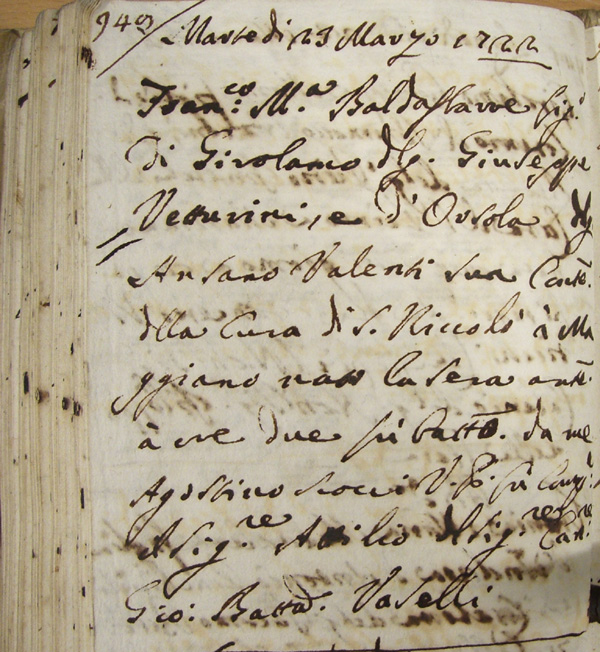 949
Martedi 23 Marzo 1722
Fran.co M.a Baldassarre fig.
di Girolamo dlg. Giuseppe
Vetturini, e d'Orsola dlg
Ansano Valenti sua Cons.
dlla Cura di S. Niccolò à Ma
ggiano nato la sera ant.
à ore due fù batt.o da me
Agostino V. P. fù Comp.
il Sig.re Attilio dl Sig.re Cav.re
Gio: Batta. Vaselli